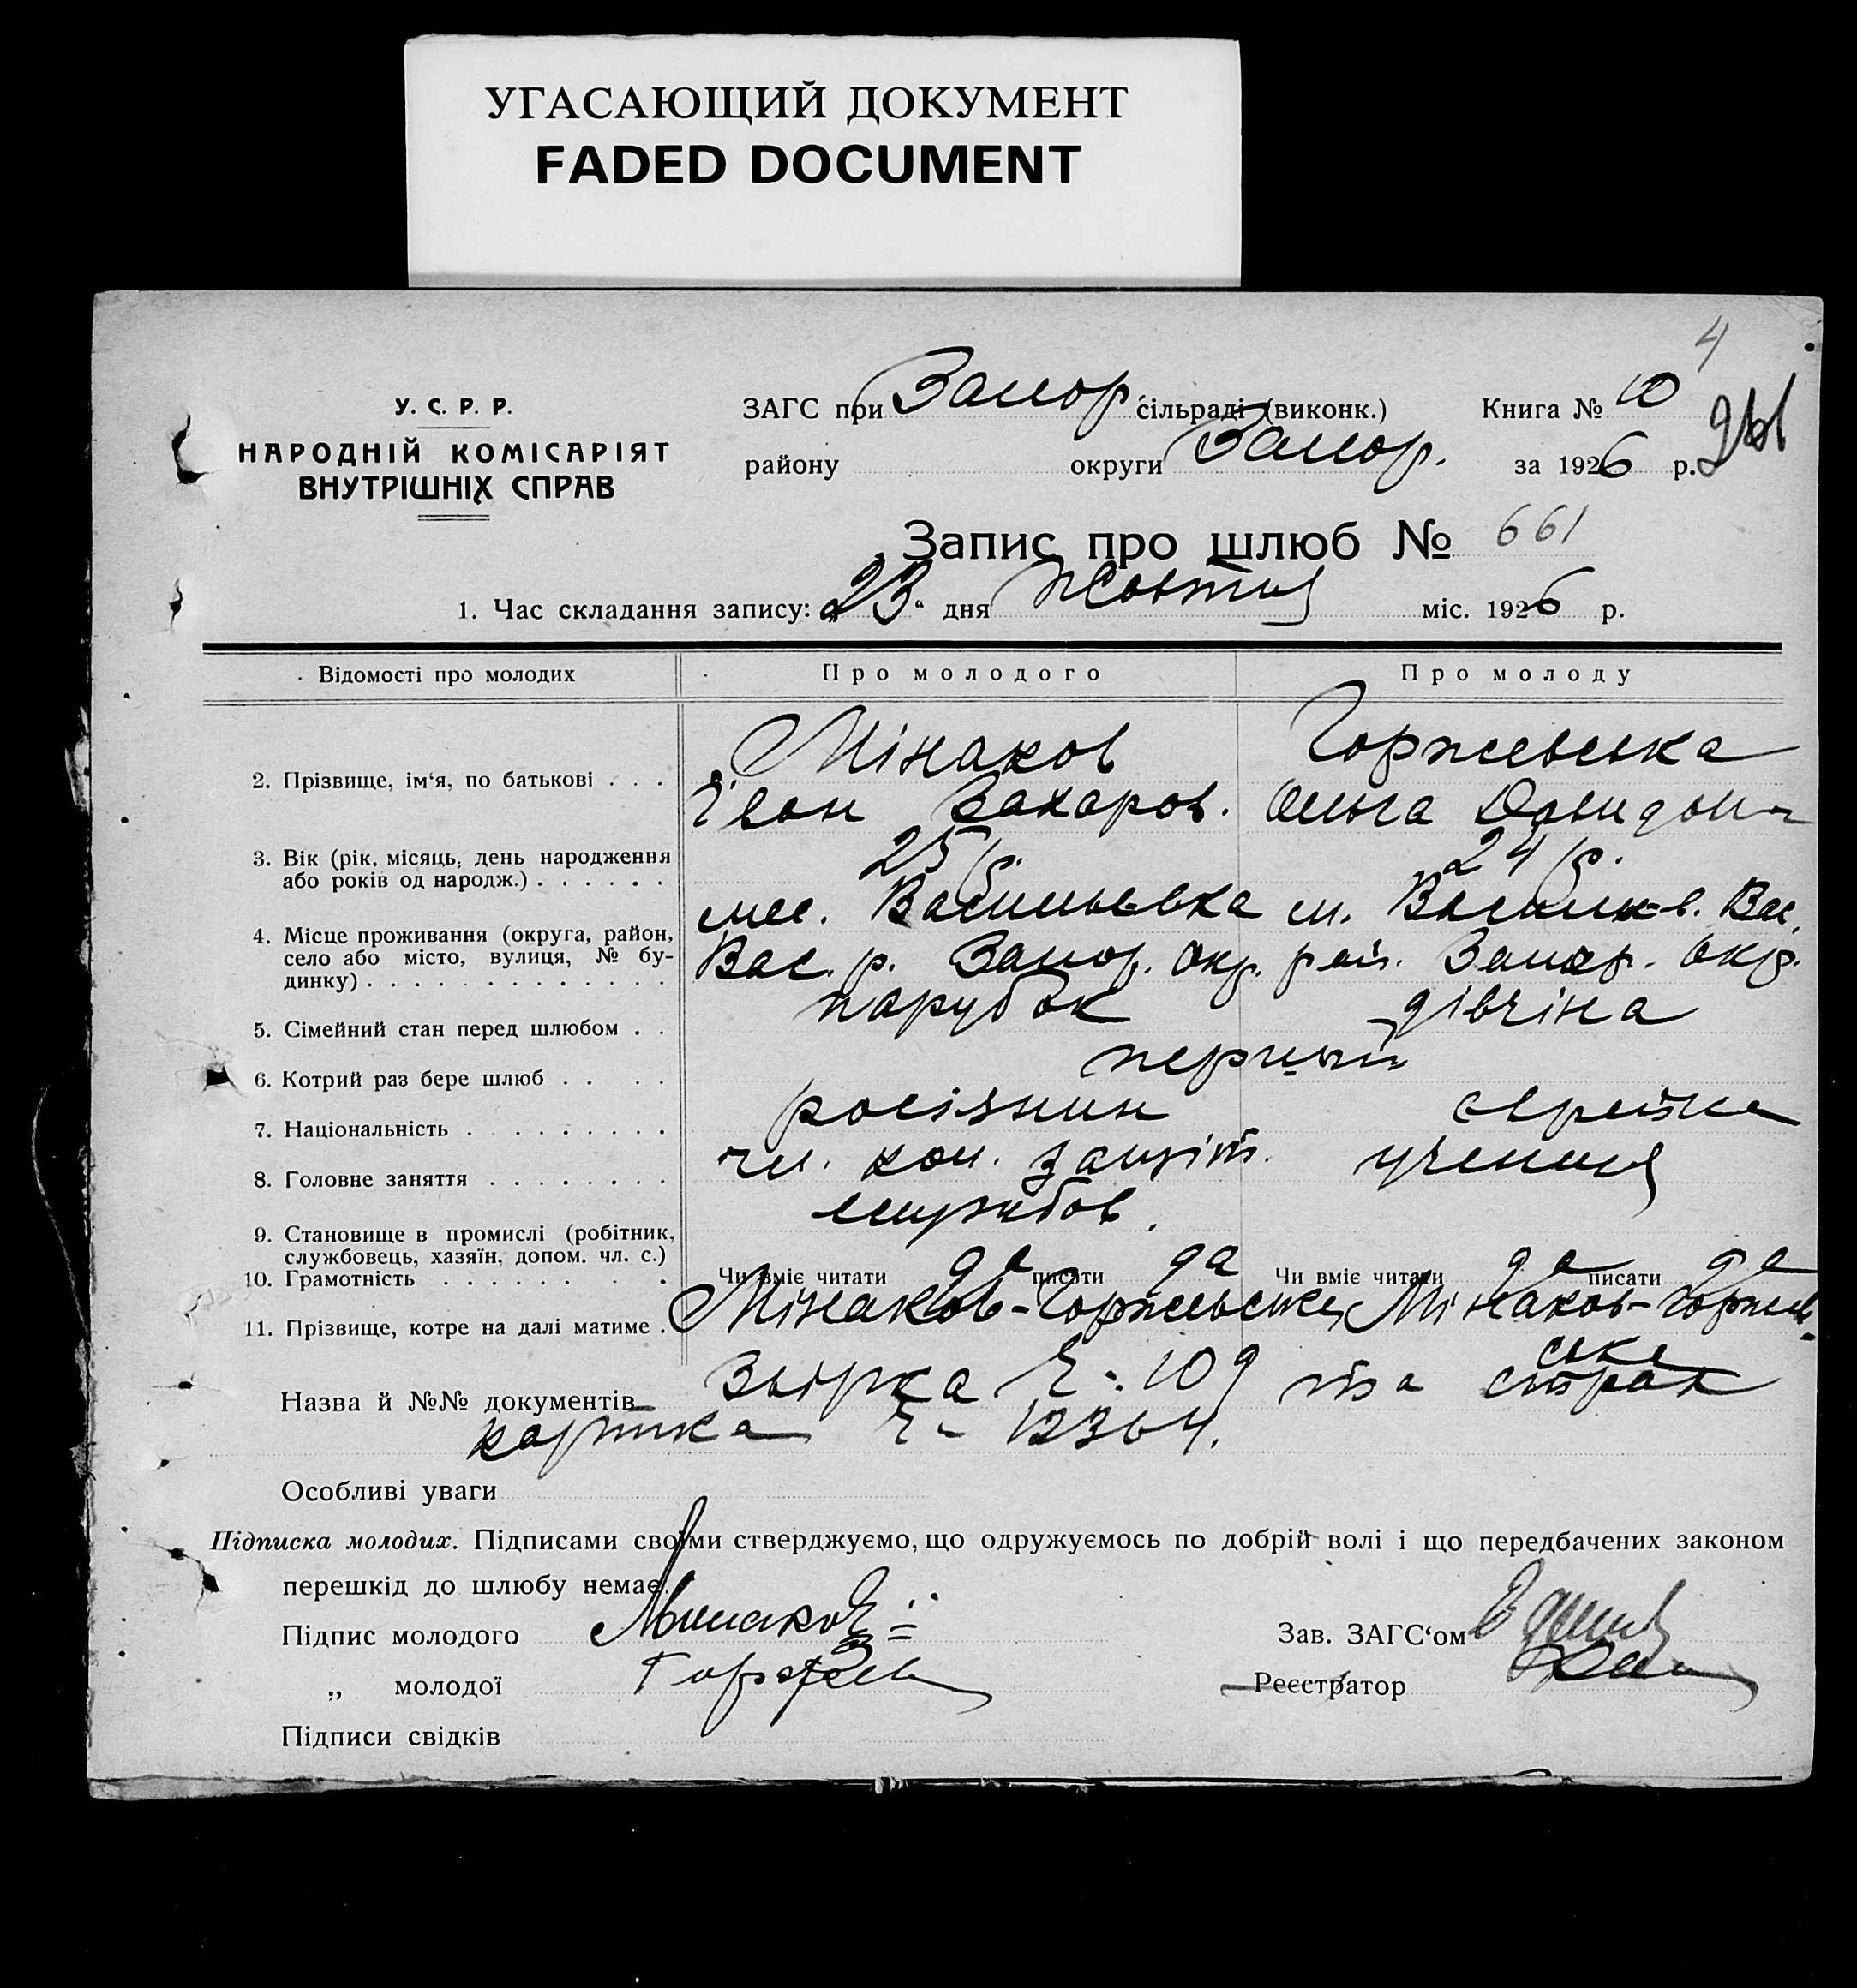 УГАСАЮЩИЙ ДОКУМЕНТ
FADED DOCUMENT
4
У. С. Р. Р.
НАРОДНІЙ КОМІСАРІЯТ
ВНУТРІШНІХ СПРАВ
ЗАГС при Запор. сільраді (виконк.) Книга № 10
району округи Запор. за 1926 р.
Запис про шлюб № 661
1. Час складання запису: „23“ дня Жовтня міс. 1926 р.
Відомості про молодих Про молодого Про молоду
2. Прізвище, ім‘я, по батькові . . . Мінаков Горжевська
Іван Захаров. Ольга Давидовна
3. Вік (рік, місяць, день народження 25 р. 24 р.
або років од народж.) . . . . . .
4. Місце проживання (округа, район, Васильевка м. Васильев. Вас.
село або місто, вулиця, № бу- Вас. р. Запор. окр. рай. Запор. окр.
динку) . . . . . . . . . . . . . .
5. Сімейний стан перед шлюбом . . парубок дівчіна
6. Котрий раз бере шлюб . . . . перший
7. Національність . . . . . . . . . росіянин єврейка
8. Головне заняття . . . . . . . . чл. ком. учениця
9. Становище в промислі (робітник, службов.
службовець, хазяїн, допом. чл. с.)
10. Грамотність . . . . . . . . Чи вміє читати да писати да Чи вміє читати да писати да
11. Прізвище, котре на далі матиме . Мінаков-Горжевське Мінаков-Горжев-
ське
Назва й №№ документів Ч. 109 та страх
картка Ч. 12364.
Особливі уваги
Підписка молодих. Підписами своїми стверджуємо, що одружуємось по добрій волі і що передбачених законом
перешкід до шлюбу немає.
Підпис молодого Минаков Зав. ЗАГС‘ом
„ молодої Горжев Реєстратор
Підписи свідків